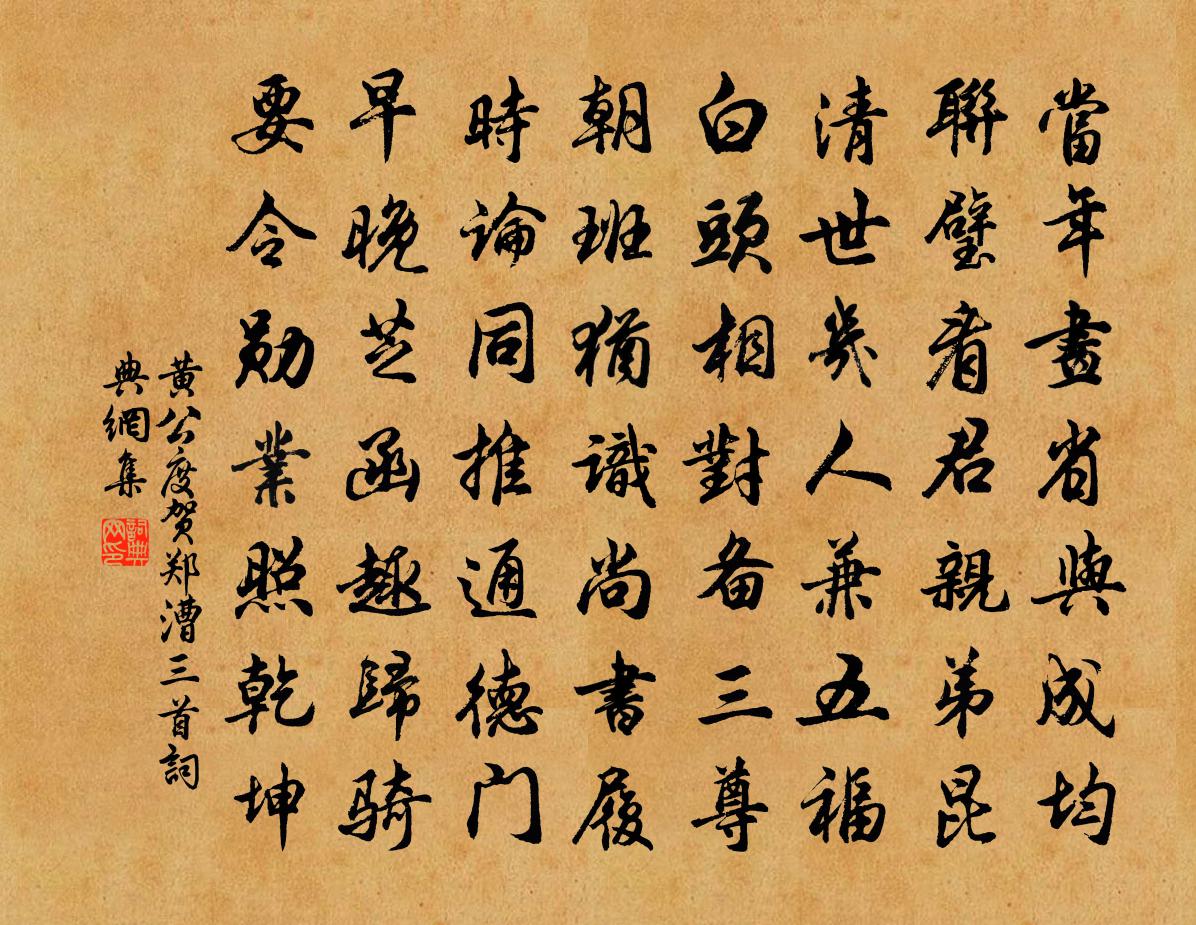 當年畫省與成均
聯璧看君親弟昆
清世幾人兼五福
白頭相對备三尊
朝班猶識尚書履
時論同推通德门
早晚芝函趣歸騎
要令勋業照乾坤
黄公度贺郑漕三首詞
典網集
詞典
网印